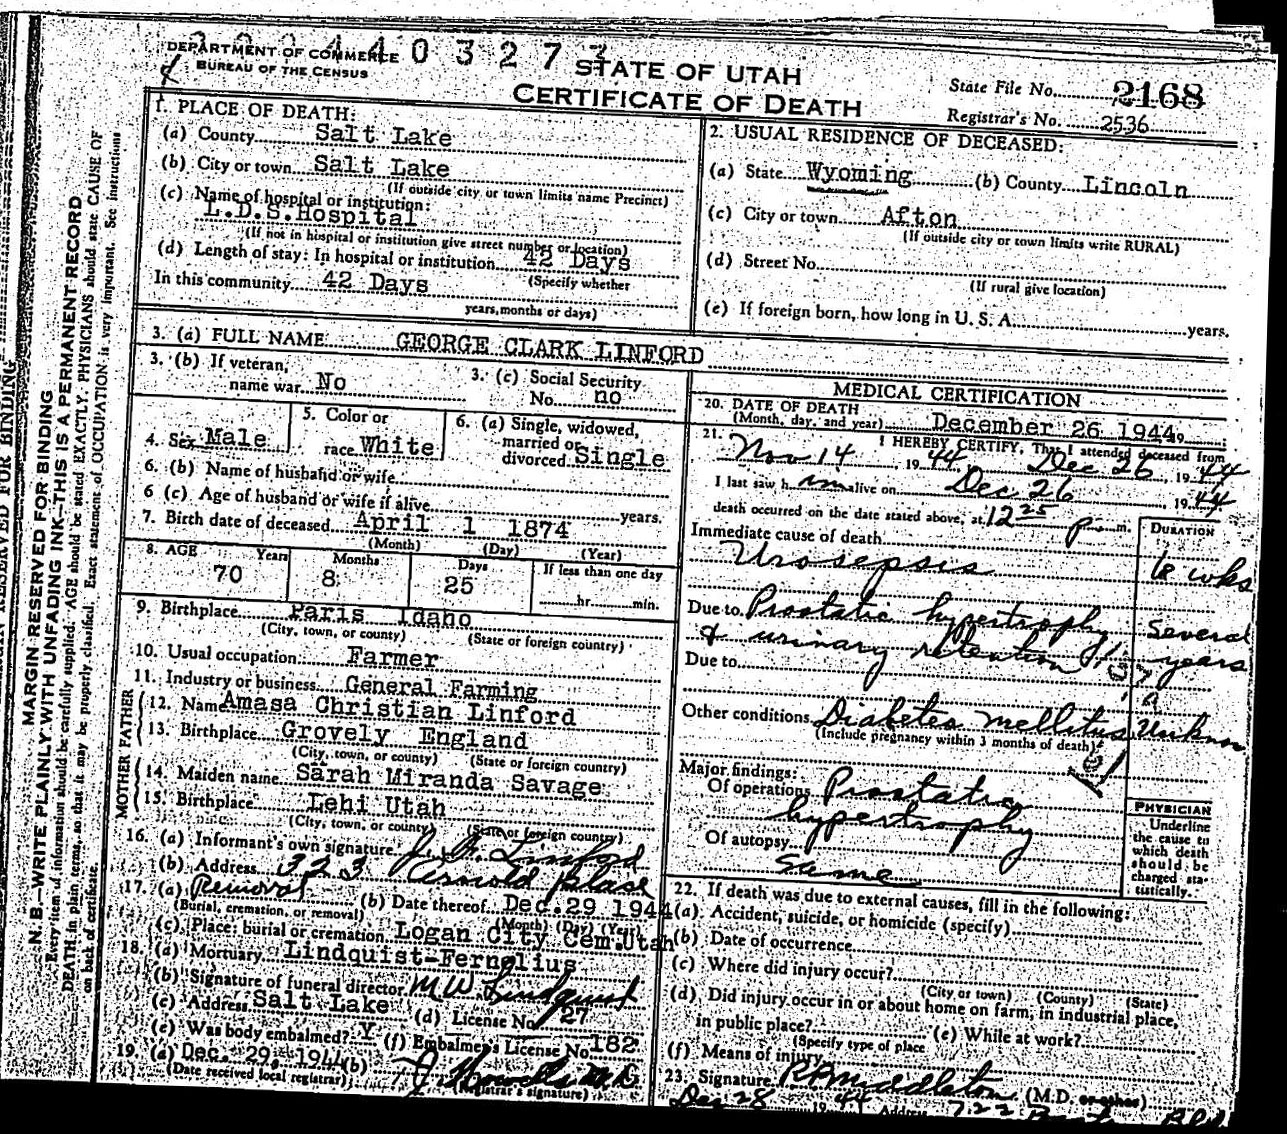 DEPARTMENT OF COMMERCE
BUREAU OF THE CENSUS
STATE OF UTAH
CERTIFICATE OF DEATH
State File No. 2168
Registrar's No. 2536
1. PLACE OF DEATH:
(a) County Salt Lake
(b) City or town Salt Lake
(If outside city or town limits name Precinct)
(c) Name of hospital or institution:
L.D.S. Hospital
(If not in hospital or institution give street number or location)
(d) Length of stay: In hospital or institution 42 Days
(Specify whether
In this community 42 Days
years, months or days)
2. USUAL RESIDENCE OF DECEASED:
(a) State Wyoming (b) County Lincoln
(c) City or town Afton
(If outside city or town limits write RURAL)
(d) Street No.
(If rural give location)
(e) If foreign born, how long in U. S. A. years.
3. (a) FULL NAME GEORGE CLARK LINFORD
3. (b) If veteran, name war No
3. (c) Social Security No. no
4. Sex Male
5. Color or race White
6. (a) Single, widowed, married or divorced Single
6. (b) Name of husband or wife
6 (c) Age of husband or wife if alive years.
7. Birth date of deceased April 1 1874
(Month) (Day) (Year)
8. AGE Years Months Days If less than one day
70 8 25 hr. min.
9. Birthplace Paris Idaho
(City, town, or county) (State or foreign country)
10. Usual occupation Farmer
11. Industry or business General Farming
FATHER
12. Name Amasa Christian Linford
13. Birthplace Grovely England
(City, town, or county) (State or foreign country)
MOTHER
14. Maiden name Sarah Miranda Savage
15. Birthplace Lehi Utah
(City, town, or county) (State or foreign country)
16. (a) Informant's own signature Linford
(b) Address 323 Arnold Place
17. (a) Removal (b) Date thereof Dec. 29 1944
(Burial, cremation, or removal) (Month) (Day) (Year)
(c) Place: burial or cremation Logan City Cem. Utah
18. (a) Mortuary Lindquist-Fernelius
(b) Signature of funeral director M W Lindquist
(c) Address Salt Lake (d) License No. 27
(e) Was body embalmed? Y (f) Embalmer's License No. 182
19. (a) Dec. 29, 1944 (b)
(Date received local registrar) (Registrar's signature)
MEDICAL CERTIFICATION
20. DATE OF DEATH
(Month, day, and year) December 26 1944 19
21. I HEREBY CERTIFY, That I attended deceased from
Nov 14 1944 Dec 26, 1944
I last saw h im alive on Dec 26 1944
death occurred on the date stated above, at 12 25 p m.
DURATION
Immediate cause of death
Urosepsis 6 wks
Due to Prostatic hypertrophy several
& urinary retention years
Due to
Other conditions Diabetes mellitus Unknow
(Include pregnancy within 3 months of death)
Major findings:
Of operations Prostatic
hypertrophy
Of autopsy
same
PHYSICIAN
Underline
the cause to
which death
should be
charged sta-
tistically.
22. If death was due to external causes, fill in the following:
(a) Accident, suicide, or homicide (specify)
(b) Date of occurrence
(c) Where did injury occur?
(City or town) (County) (State)
(d) Did injury occur in or about home on farm, in industrial place,
in public place? (e) While at work?
(Specify type of place
(f) Means of injury
23. Signature R B Middleton (M.D. or other)
Dec 28 1944 Address
MARGIN RESERVED FOR BINDING
N. B.—WRITE PLAINLY WITH UNFADING INK—THIS IS A PERMANENT RECORD
Every item of information should be carefully supplied. AGE should be stated EXACTLY. PHYSICIANS should state CAUSE OF
DEATH in plain terms, so that it may be properly classified. Exact statement of OCCUPATION is very important. See instructions
on back of certificate.